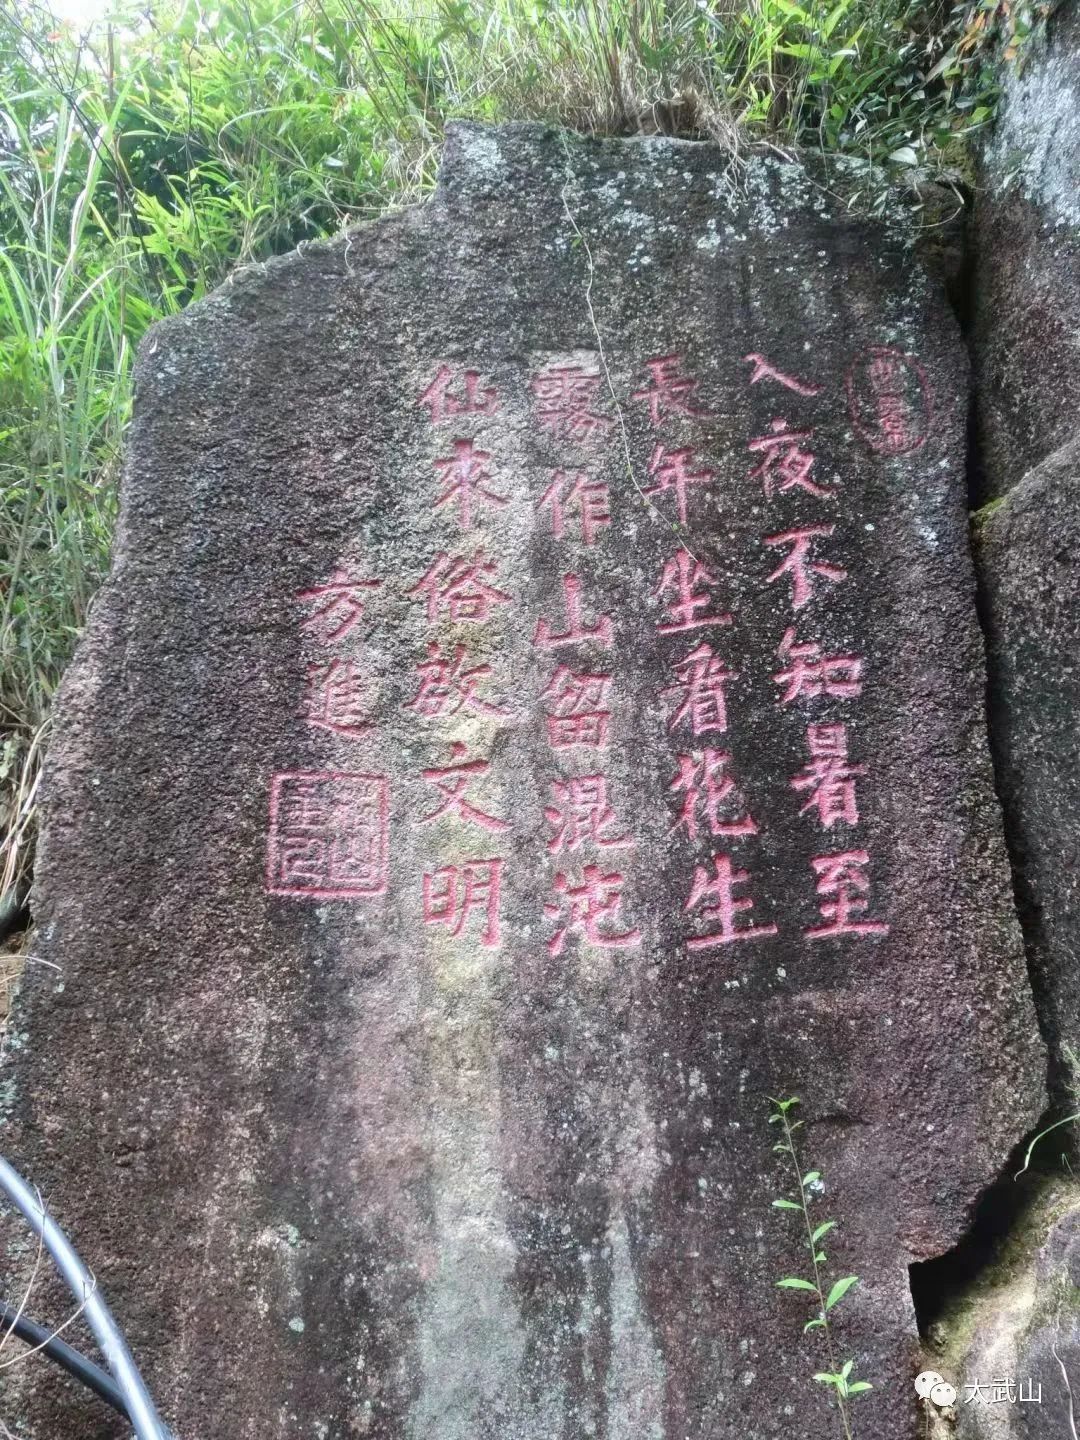 入夜不知暑至
長年坐看花生
霧作山留混沌
仙來俗啟文明
方進
太武山